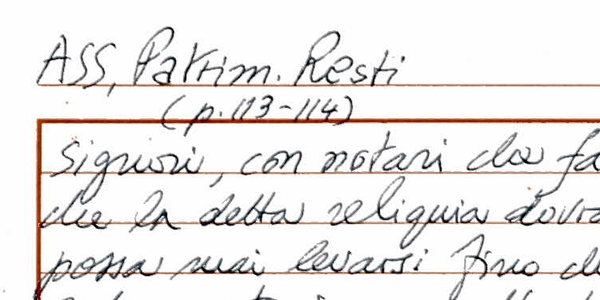 ASS, Patrim. Resti
(p. 113-114)
Signori, con notari da fa
che la detta reliquia dovra
possa mai levarsi fino d